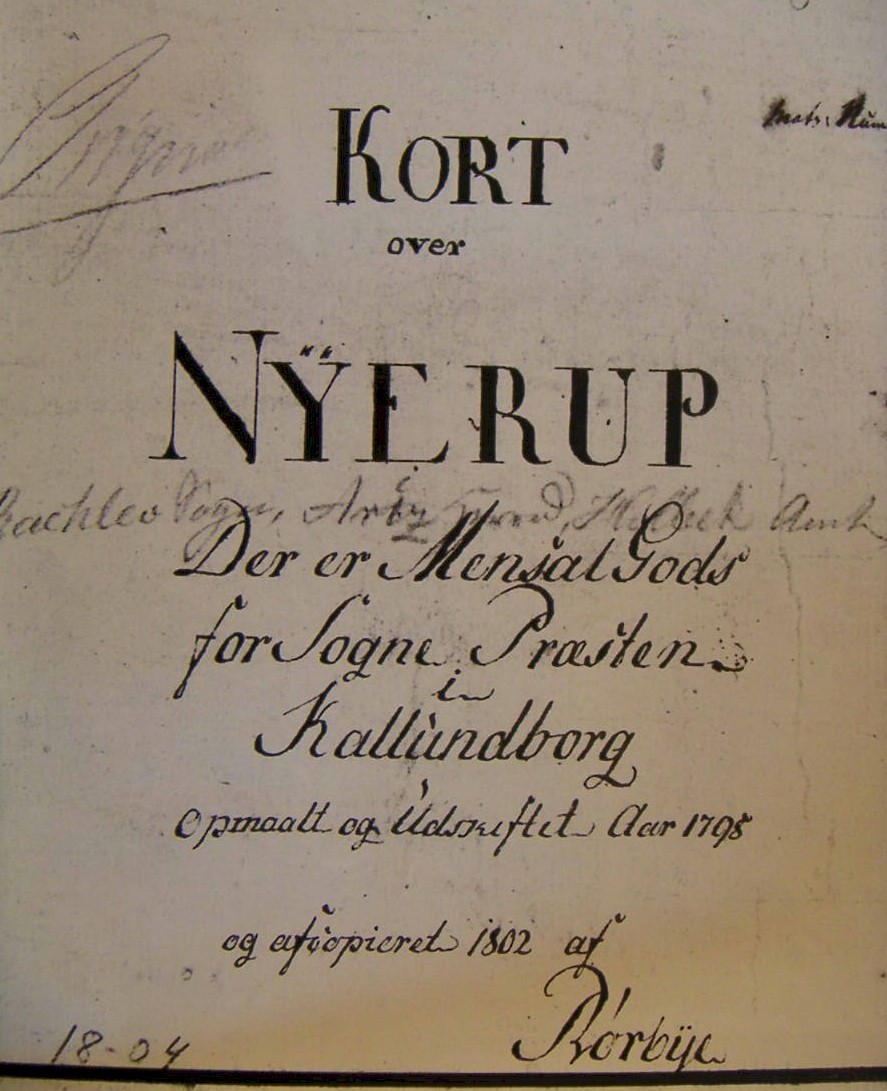 Matr: Num
KORT
over
NŸERUP
Sogn, Arts Herred, Holbek Amt
Der er Mensal Gods
for Sogne Præsten
i
Kallundborg
Opmaalt og Udskiftet Aar 1798
og afcopieret 1802 af
Rørbÿe
18-04